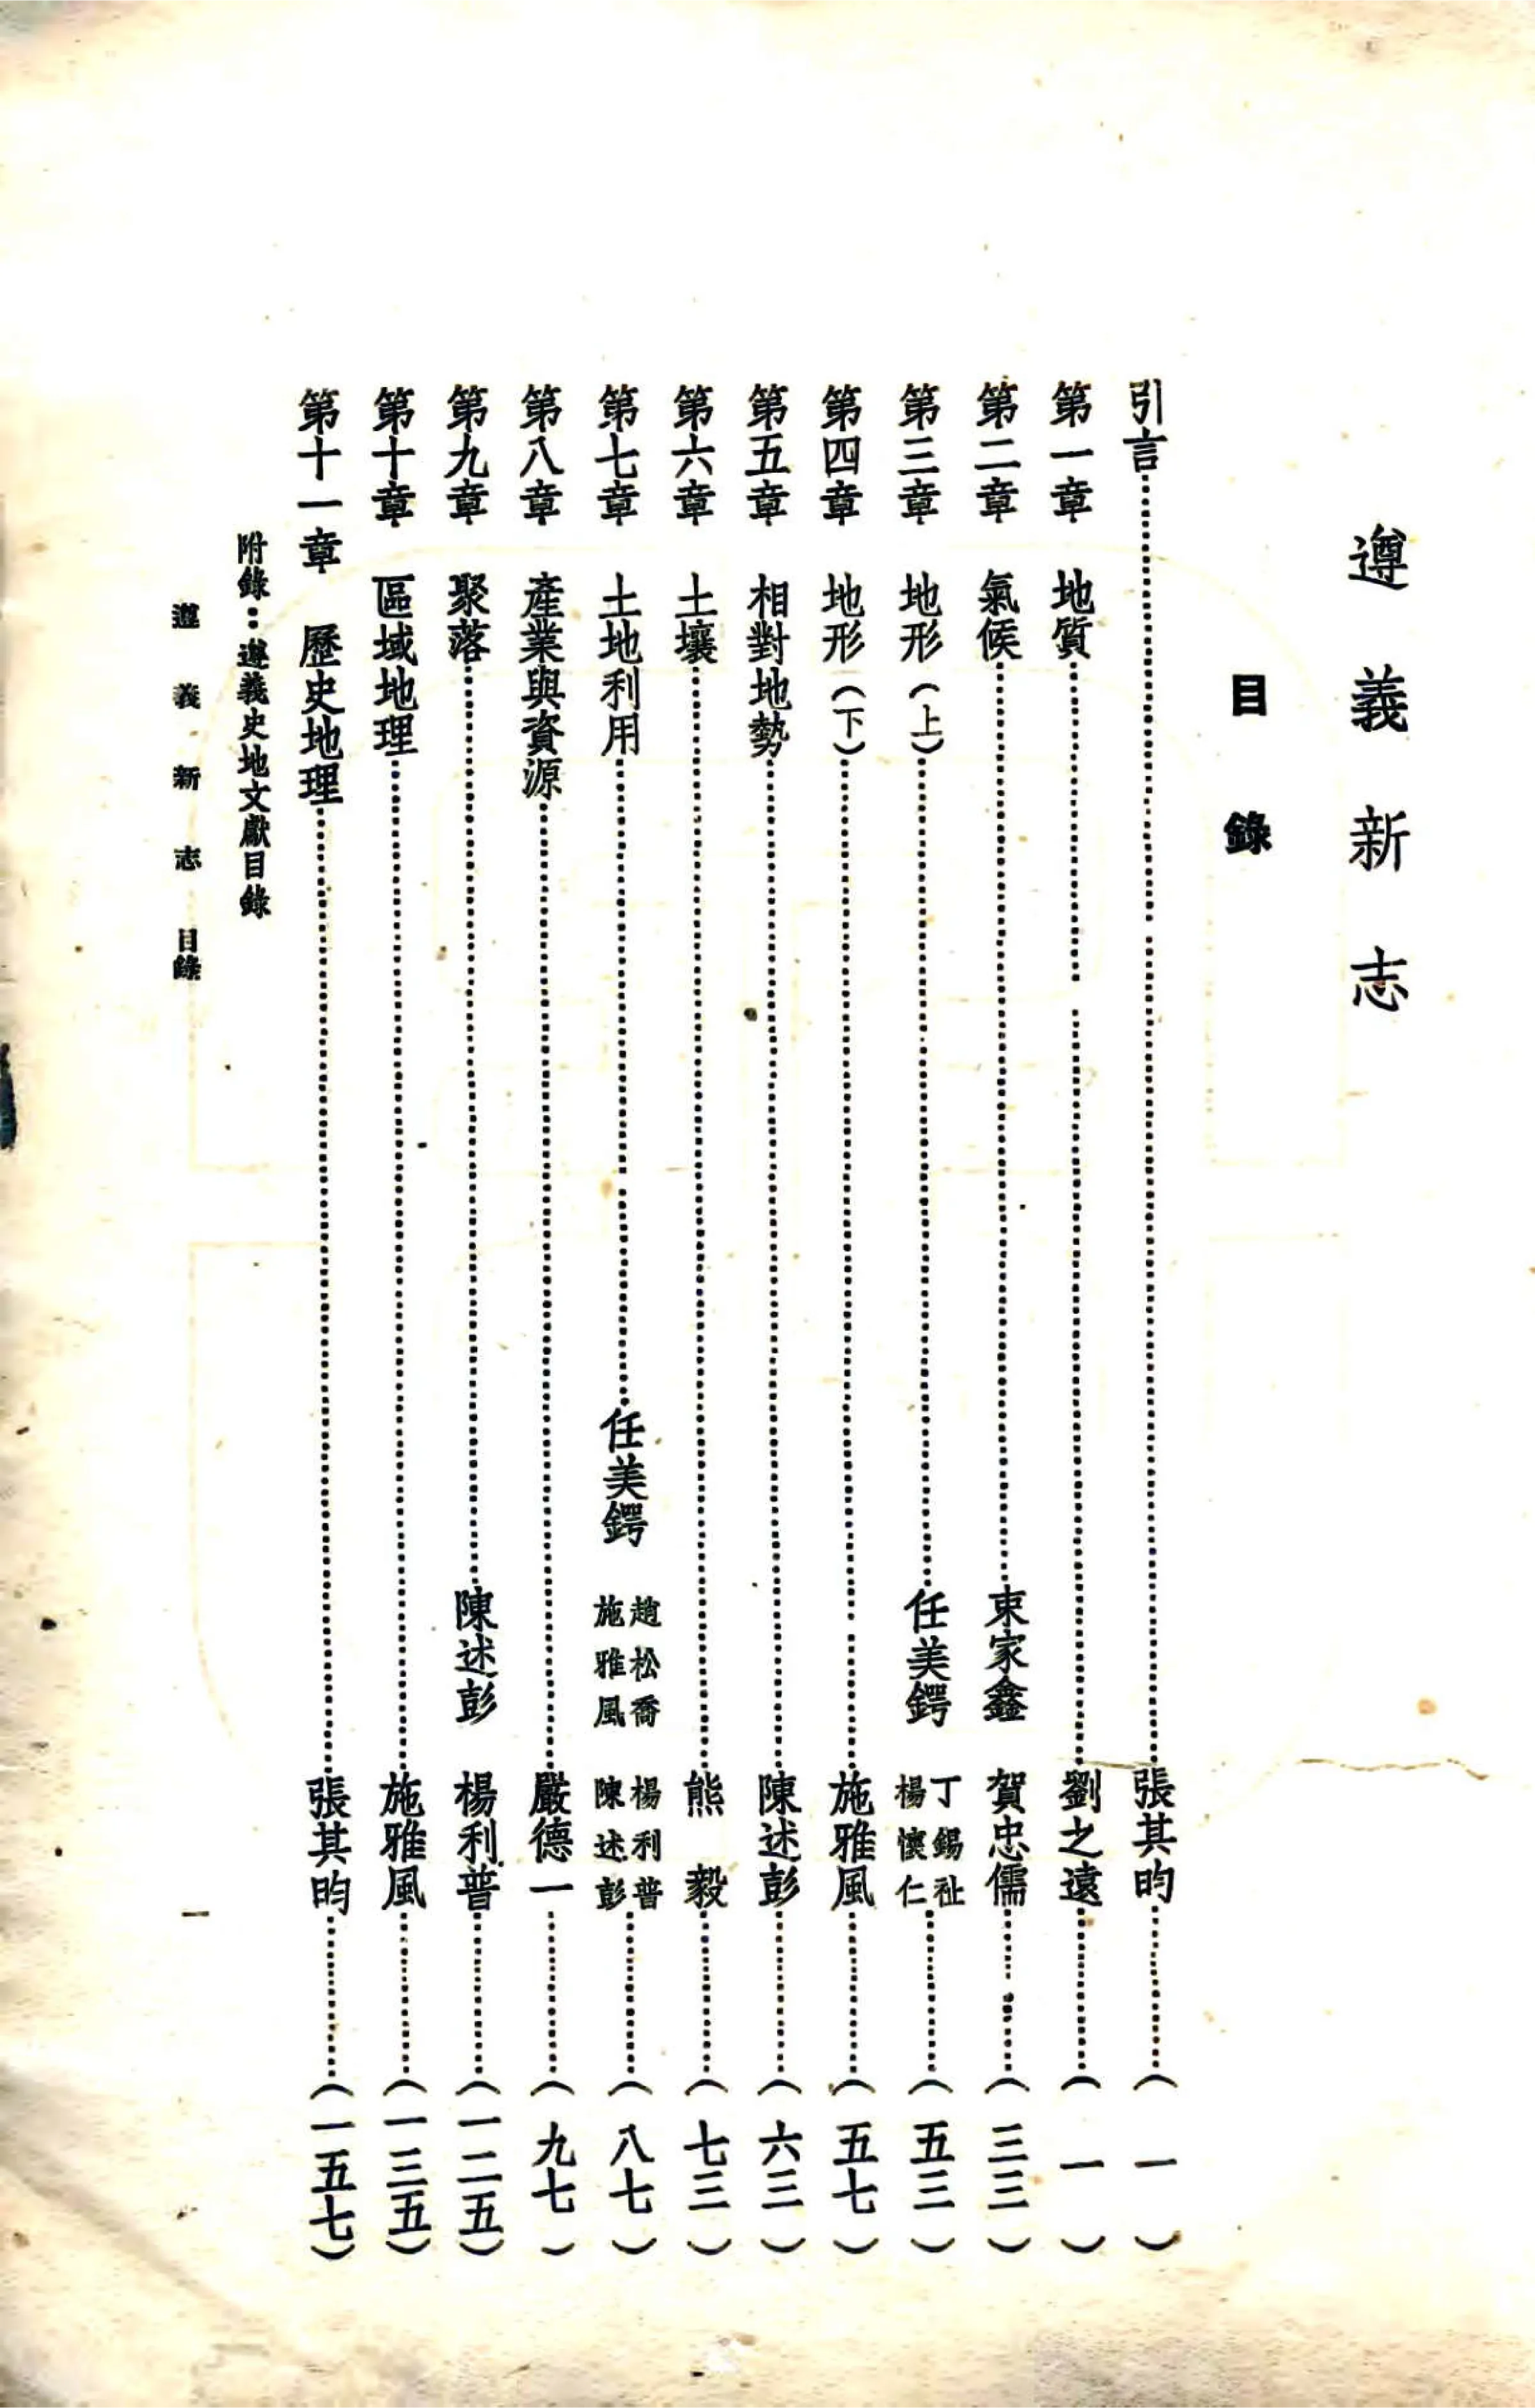 遵義新志
目錄
引言……張其昀……（一）
第一章 地質……劉之遠……（一）
第二章 氣候……束家鑫 賀忠儒……（三三）
第三章 地形（上）……任美鍔 丁錫祉 楊懷仁……（五三）
第四章 地形（下）……施雅風……（五七）
第五章 相對地勢……陳述彭……（六三）
第六章 土壤……熊毅……（七三）
第七章 土地利用……任美鍔 趙松喬 施雅風 楊利普 陳述彭……（八七）
第八章 產業與資源……嚴德一……（九七）
第九章 聚落……陳述彭 楊利普……（一二五）
第十章 區域地理……施雅風……（一三五）
第十一章 歷史地理……張其昀……（一五七）
附錄：遵義史地文獻目錄
遵義新志 目錄 一